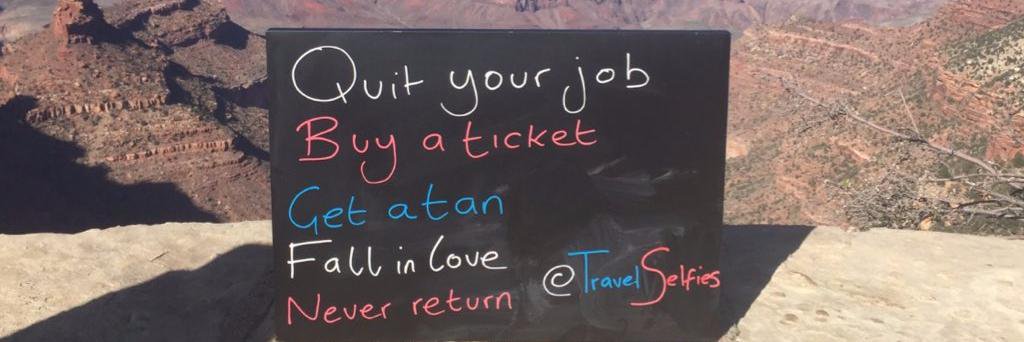 Quit your job
Buy a ticket
Get a tan
Fall in love
Never return
@TravelSelfies